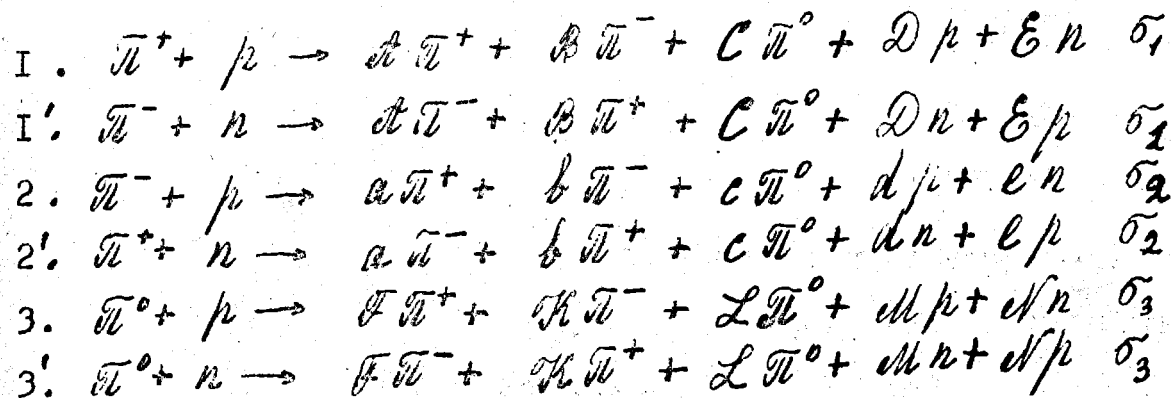 I. π⁺ + p → Aπ⁺ + Bπ⁻ + Cπ⁰ + Dp + En σ₁
I'. π⁻ + n → Aπ⁻ + Bπ⁺ + Cπ⁰ + Dn + Ep σ₁
2. π⁻ + p → aπ⁺ + bπ⁻ + cπ⁰ + dp + en σ₂
2'. π⁺ + n → aπ⁻ + bπ⁺ + cπ⁰ + dn + ep σ₂
3. π⁰ + p → Fπ⁺ + Kπ⁻ + Lπ⁰ + Mp + Nn σ₃
3'. π⁰ + n → Fπ⁻ + Kπ⁺ + Lπ⁰ + Mn + Np σ₃